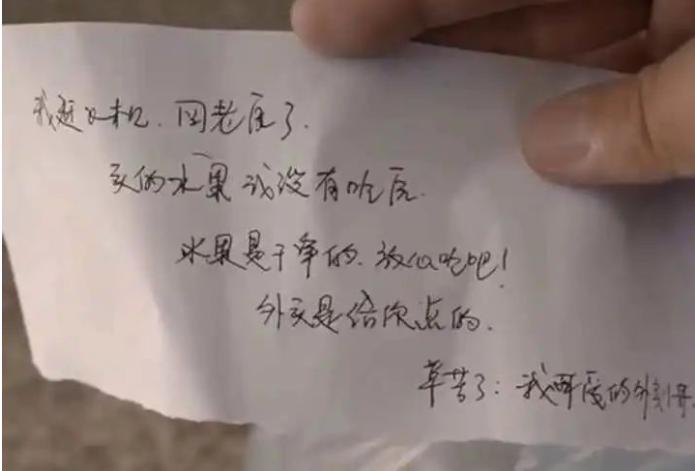 我赶飞机．回老家了．
买的水果 我没有吃完．
水果是干净的．放心吃吧！
外卖是给你点的．
辛苦了：我 的外